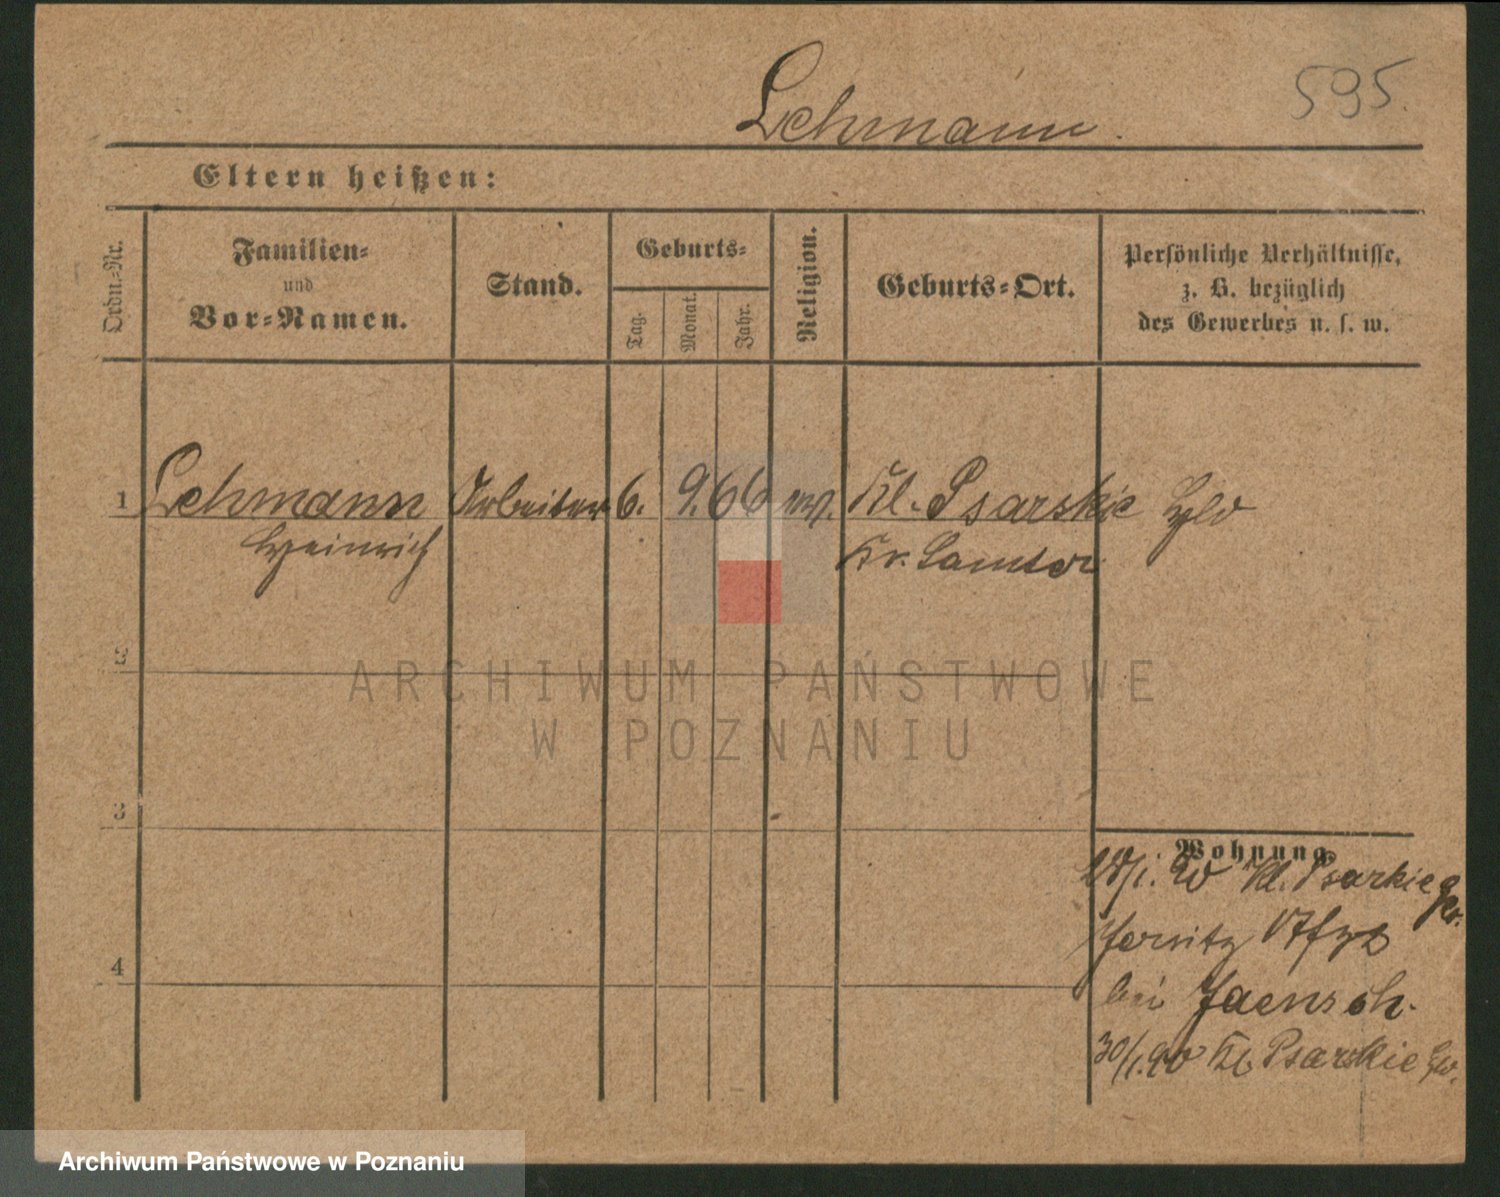 595.
Lehmann.
Eltern heißen:
Ordn.-Nr.
Familien-
und
Vor-Namen.
Stand.
Geburts-
Tag.
Monat.
Jahr.
Religion.
Geburts-Ort.
Persönliche Verhältnisse,
z. B. bezüglich
des Gewerbes u. s. w.
1 Lehmann Arbeiter 6. 9. 66 ev. Kl. Psarskie
Heinrich Kr. Samter
2
3
4
Wohnung
28/1. 90 Kl. Psarkie
Jersitz
bei Jaensch.
30/1. 90 Kl. Psarskie
ARCHIWUM PAŃSTWOWE
W POZNANIU
Archiwum Państwowe w Poznaniu